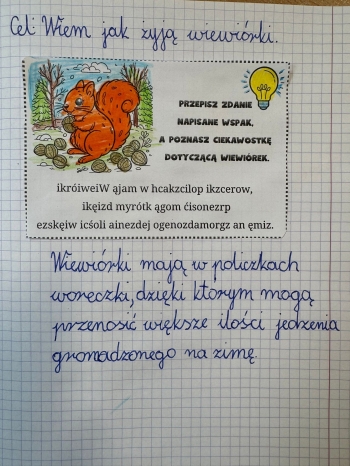 Cel: Wiem jak żyją wiewiórki.
PRZEPISZ ZDANIE
NAPISANE WSPAK,
A POZNASZ CIEKAWOSTKĘ
DOTYCZĄCĄ WIEWIÓREK.
ikróiweiW ąjam w hcakzcilop ikzcerow,
ikęizd myrótk ągom ćisonezrp
ezskęiw icśoli ainezdej ogenozdamorgz an ęmiz.
Wiewiórki mają w policzkach
woreczki, dzięki którym mogą
przenosić większe ilości jedzenia
gromadzonego na zimę.